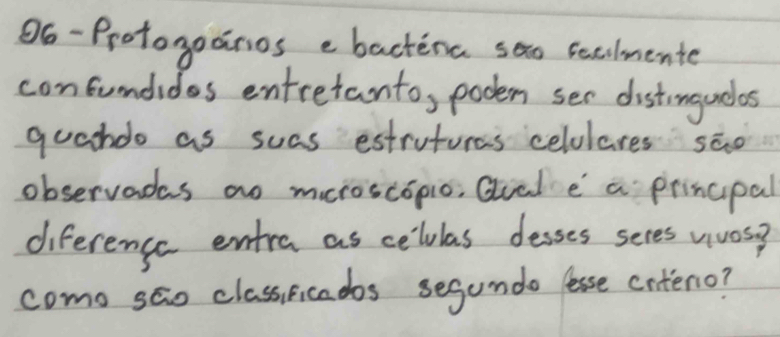 06 - Protozoários e bactéria são facilmente
confundidos entretanto, podem ser distinguidos
quando as suas estruturas celulares são
observadas ao microscópio. Qual é a principal
diferença entra as células desses seres vivos?
como são classificados segundo esse critério?